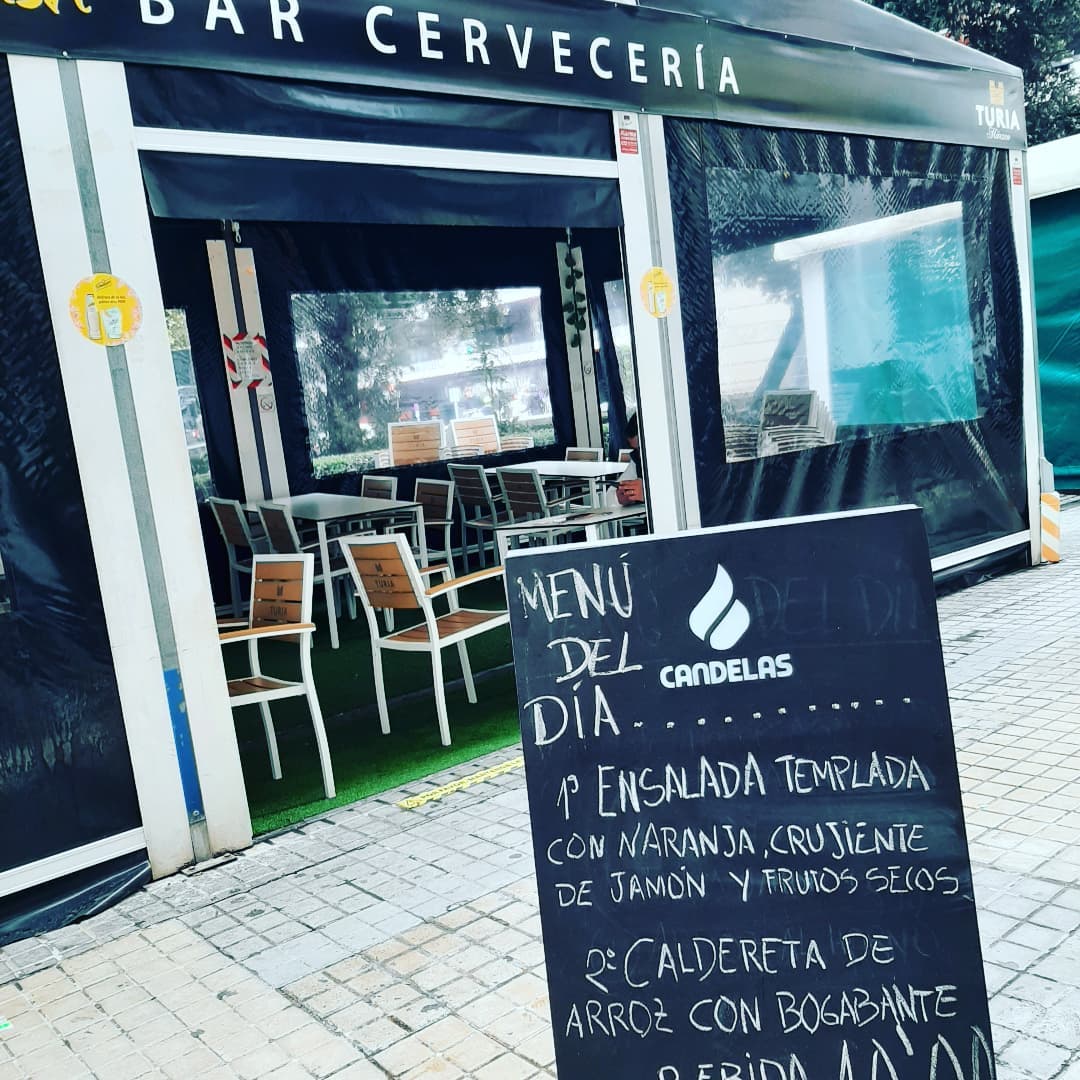 BAR CERVECERÍA
TURIA
Märzen
TURIA
TURIA
MENÚ
DEL
DÍA
CANDELAS
1º ENSALADA TEMPLADA
CON NARANJA, CRUJIENTE
DE JAMÓN Y FRUTOS SECOS
2º CALDERETA DE
ARROZ CON BOGAVANTE
BEBIDA